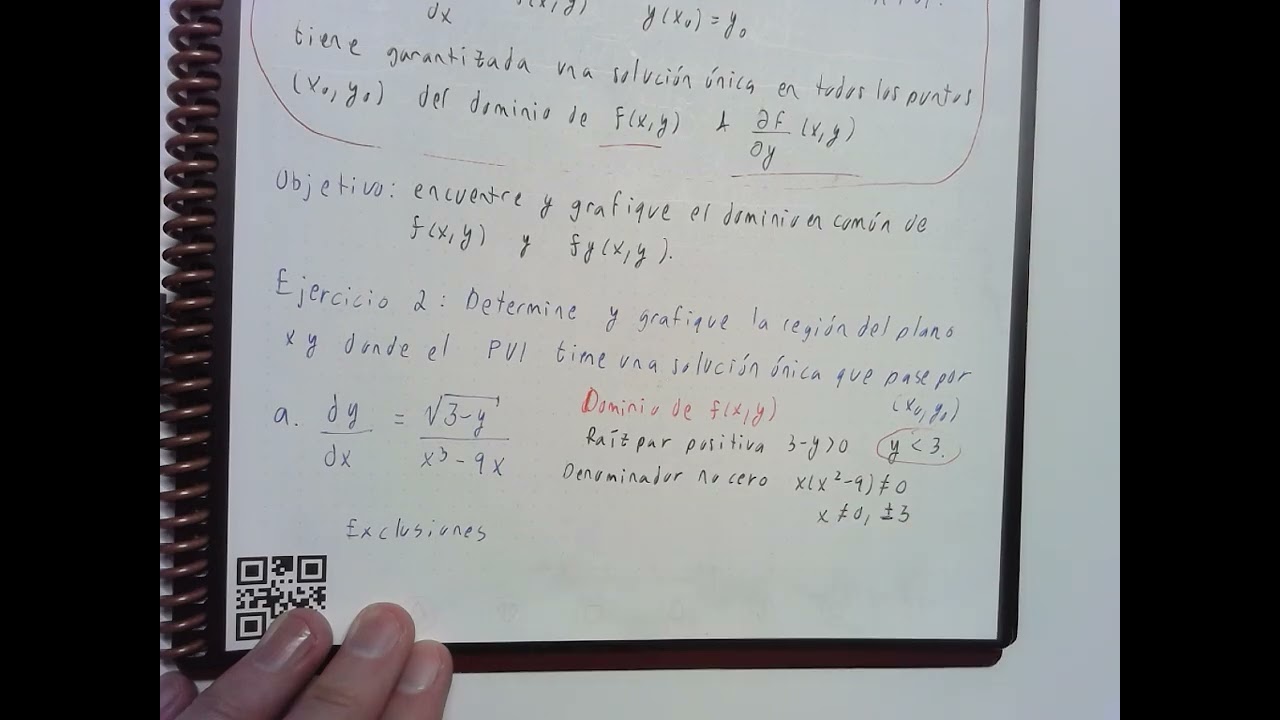 dx y(x₀) = y₀
tiene garantizada una solución única en todos los puntos
(x₀, y₀) del dominio de f(x,y) & ∂f/∂y (x,y)
Objetivo: encuentre y grafique el dominio en común de
f(x,y) y fy(x,y).
Ejercicio 2: Determine y grafique la región del plano
xy donde el PVI tiene una solución única que pase por
(x₀, y₀)
a. dy/dx = √(3-y) / (x³ - 9x)
Dominio de f(x,y)
Raíz par positiva 3-y>0 y < 3.
Denominador no cero x(x²-9) ≠ 0
x ≠ 0, ±3
Exclusiones